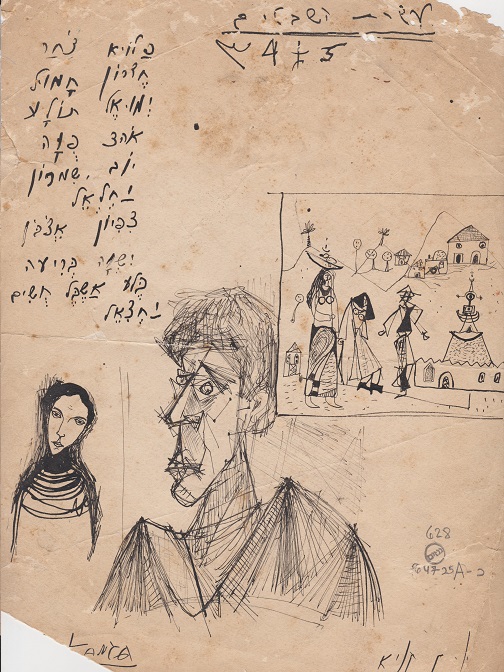 עשרת השבטים
פַלּוּא צֹחַר
חֶצְרוֹן חָמוּל
יְמוּאֵל תּוֹלָע
אֹהַד פֻוָּה
יוֹב, שִמרוֹן
יַחְלְאֵל
צִפְיוֹן אֶצְבֹּן
יִשְוָה בְּרִיעָה
בֶּלַע אַשְבֵּל חֻשִים
יַחְצְאֵל
628
64725A-2